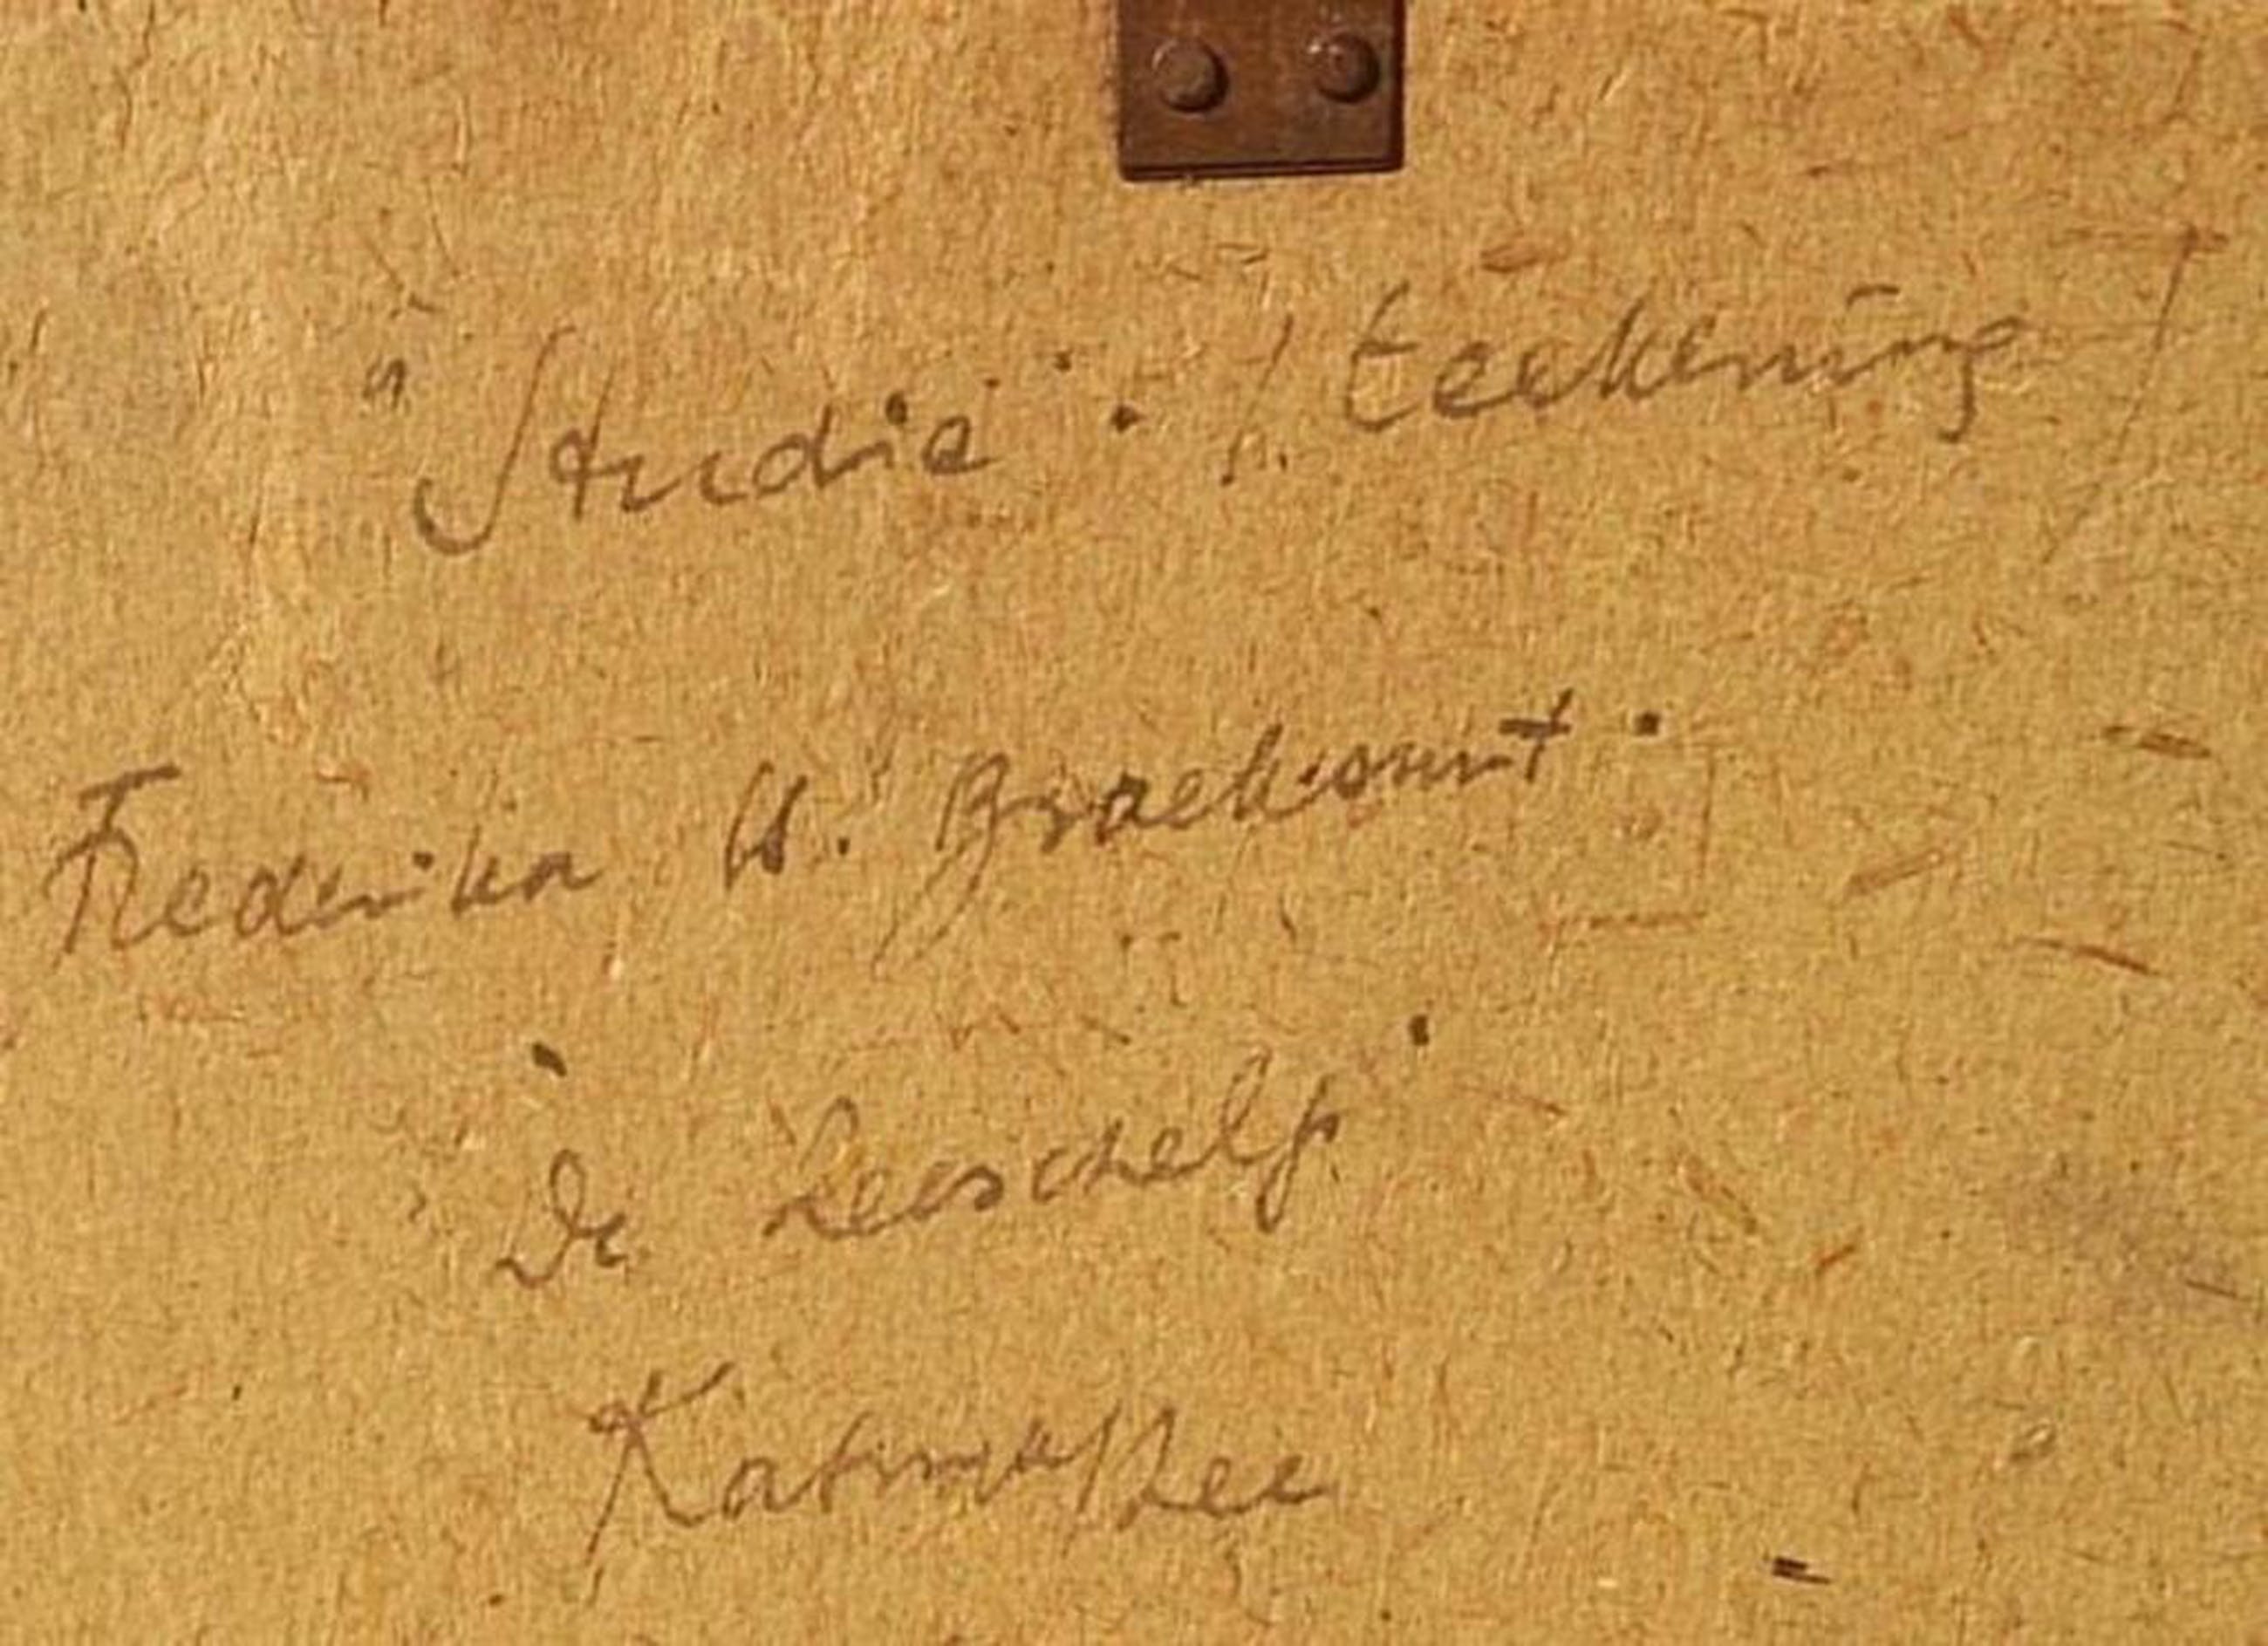 "Studie". / teekening /
Frederika W. Braeksunt.
"De Zeeschelp"
Katwijk a/Zee